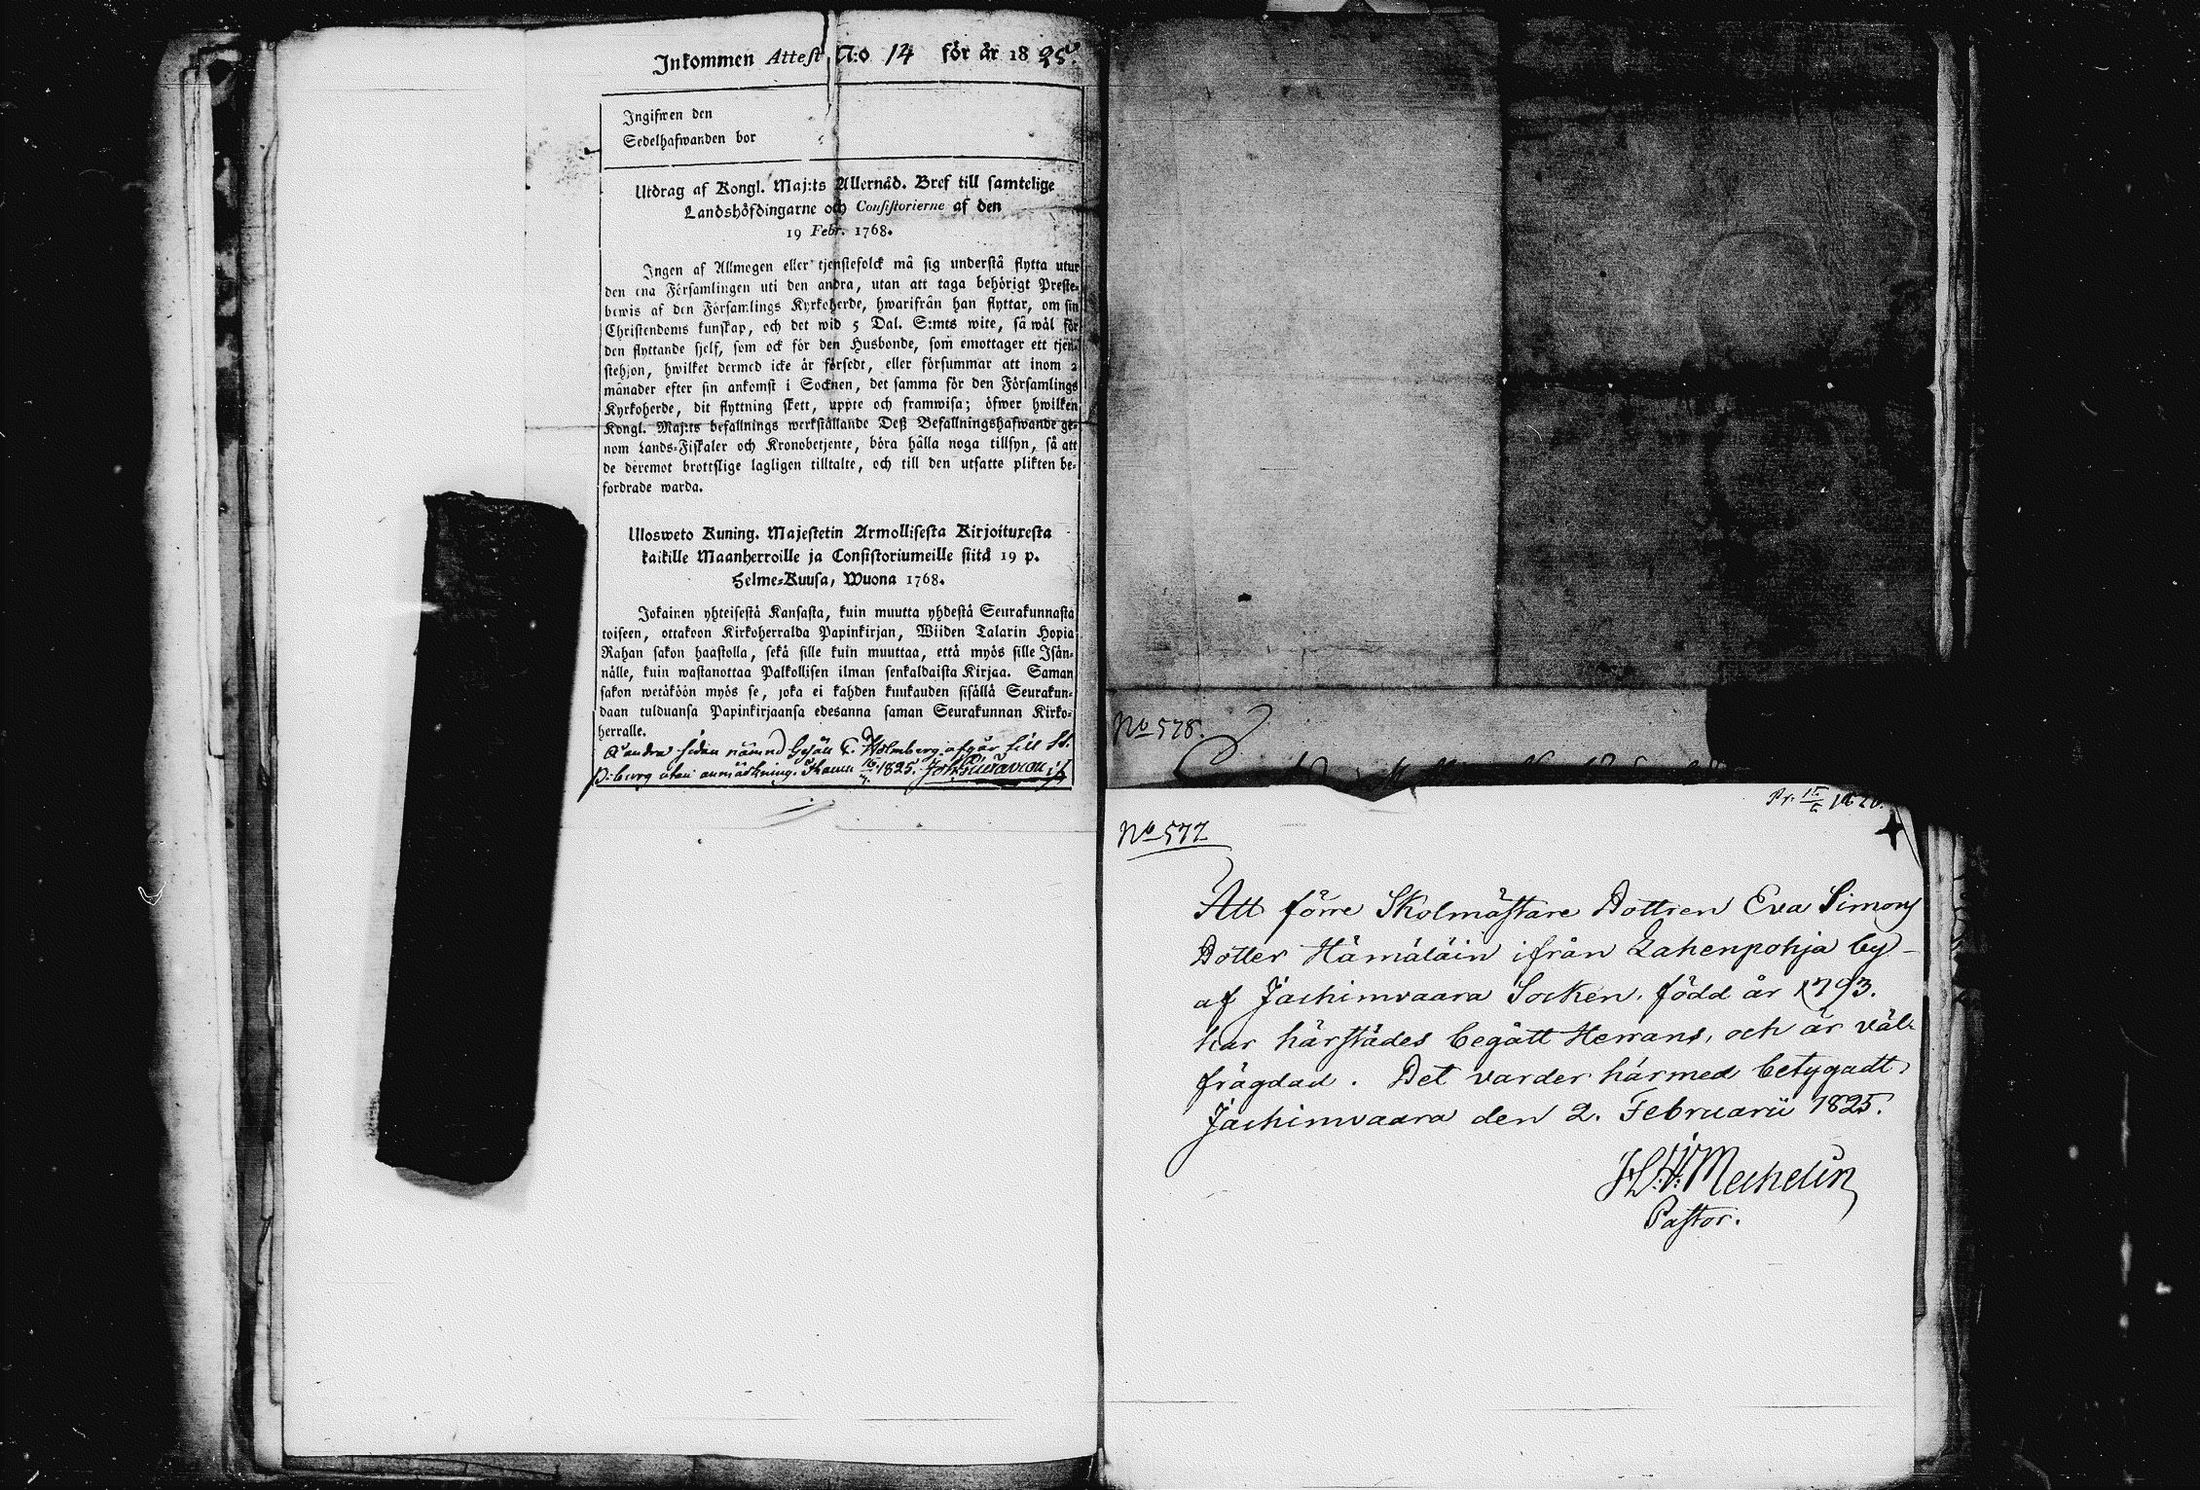 Inkommen Attest N:o 14 för år 1825.
Ingifwen den
Sedelhafwanden bor
Utdrag af Kongl. Maj:ts Allernåd. Bref till samtelige
Landshöfdingarne och Consistorierne af den
19 Febr. 1768.
Ingen af Allmogen eller tjenstefolck må sig understå flytta utur
den ena Församlingen uti den andra, utan att taga behörigt Preste-
bewis af den Församlings Kyrkoherde, hwarifrån han flyttar, om sin
Christendoms kunskap, och det wid 5 Dal. S:mts wite, så wäl för
den flyttande sjelf, som ock för den Husbonde, som emottager ett tjen-
stehjon, hwilket dermed icke är försedt, eller försummar att inom 2
månader efter sin ankomst i Socknen, det samma för den Församlings
Kyrkoherde, dit flyttning skett, uppte och framwisa; öfwer hwilken
Kongl. Maj:ts befallnings werkställande Deß Befallningshafwande ge-
nom Lands-Fiskaler och Kronobetjente, böra hålla noga tillsyn, så att
de deremot brottslige lagligen tilltalte, och till den utsatte plikten be-
fordrade warda.
Ulosweto Kuning. Majestetin Armollisesta Kirjoituxesta
kaikille Maanherroille ja Consistoriumeille siitä 19 p.
Helme-Kuusa, Wuona 1768.
Jokainen yhteisestä Kansasta, kuin muutta yhdestä Seurakunnasta
toiseen, ottakoon Kirkoherralda Papinkirjan, Wiiden Talarin Hopia
Rahan sakon haastolla, sekä sille kuin muuttaa, että myös sille Isän-
nälle, kuin wastanottaa Palkollisen ilman senkaldaista Kirjaa. Saman
sakon wetäköön myös se, joka ei kahden kuukauden sisällä Seurakun-
daan tulduansa Papinkirjaansa edesanna saman Seurakunnan Kirko-
herralle.
andra sidan nämnd Gesäll C. Holmberg afgår till St.
P:burg utan anmärkning. 1825.
No 578.
No 577
Att förre Skolmästare Dottren Eva Simons
Dotter Hämäläin ifrån Lahenpohja by
af Jachimvaara Socken, född år 1793.
har härstädes begått Herrans, och är väl
frägdad. Det varder härmed betygadt,
Jachimvaara den 2. Februarii 1825.
Mechelin
Pastor.